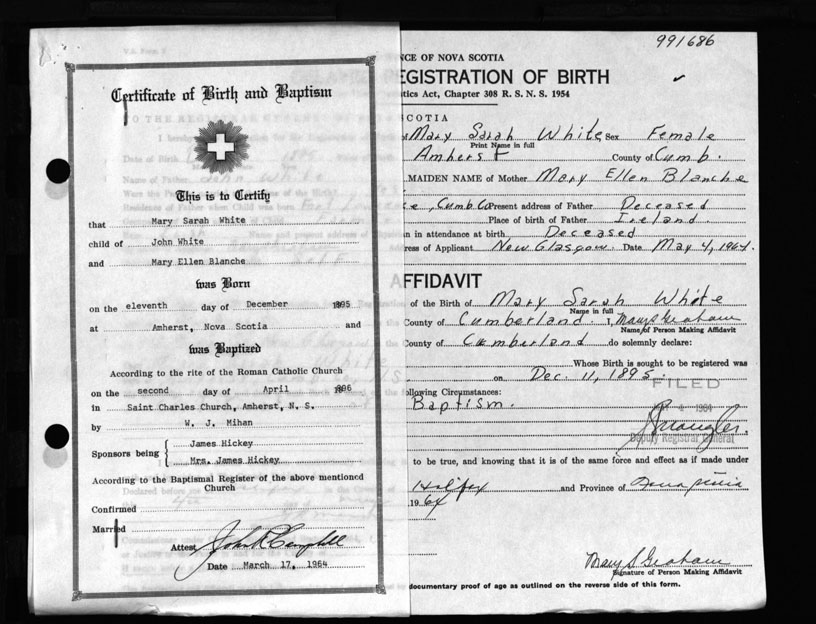 Certificate of Birth and Baptism
This is to Certify
that Mary Sarah White
child of John White
and Mary Ellen Blanche
was Born
on the eleventh day of December 1895
at Amherst, Nova Scotia and
was Baptized
According to the rite of the Roman Catholic Church
on the second day of April 1896
in Saint Charles Church, Amherst, N. S.
by W. J. Mihan
Sponsors being James Hickey
Mrs. James Hickey
According to the Baptismal Register of the above mentioned
Church
Confirmed
Married
Attest John R Campbell
Date March 17, 1964
991686
NCE OF NOVA SCOTIA
EGISTRATION OF BIRTH
tics Act, Chapter 308 R. S. N. S. 1954
SCOTIA
Mary Sarah White Sex Female
Print Name in full
Amherst County of Cumb.
MAIDEN NAME of Mother Mary Ellen Blanche
e, Cumb Co Present address of Father Deceased
Place of birth of Father Ireland.
n in attendance at birth Deceased
ress of Applicant New Glasgow. Date May 4, 1964.
AFFIDAVIT
of the Birth of Mary Sarah White
Name in full
County of Cumberland. I, Mary S Graham
Name of Person Making Affidavit
County of Cumberland do solemnly declare:
Whose Birth is sought to be registered was
on Dec. 11, 1895.
FILED
ollowing Circumstances:
Baptism.
Deputy Registrar General
to be true, and knowing that it is of the same force and effect as if made under
Halifax and Province of Nova Scotia
1964
Mary S Graham
Signature of Person Making Affidavit
documentary proof of age as outlined on the reverse side of this form.